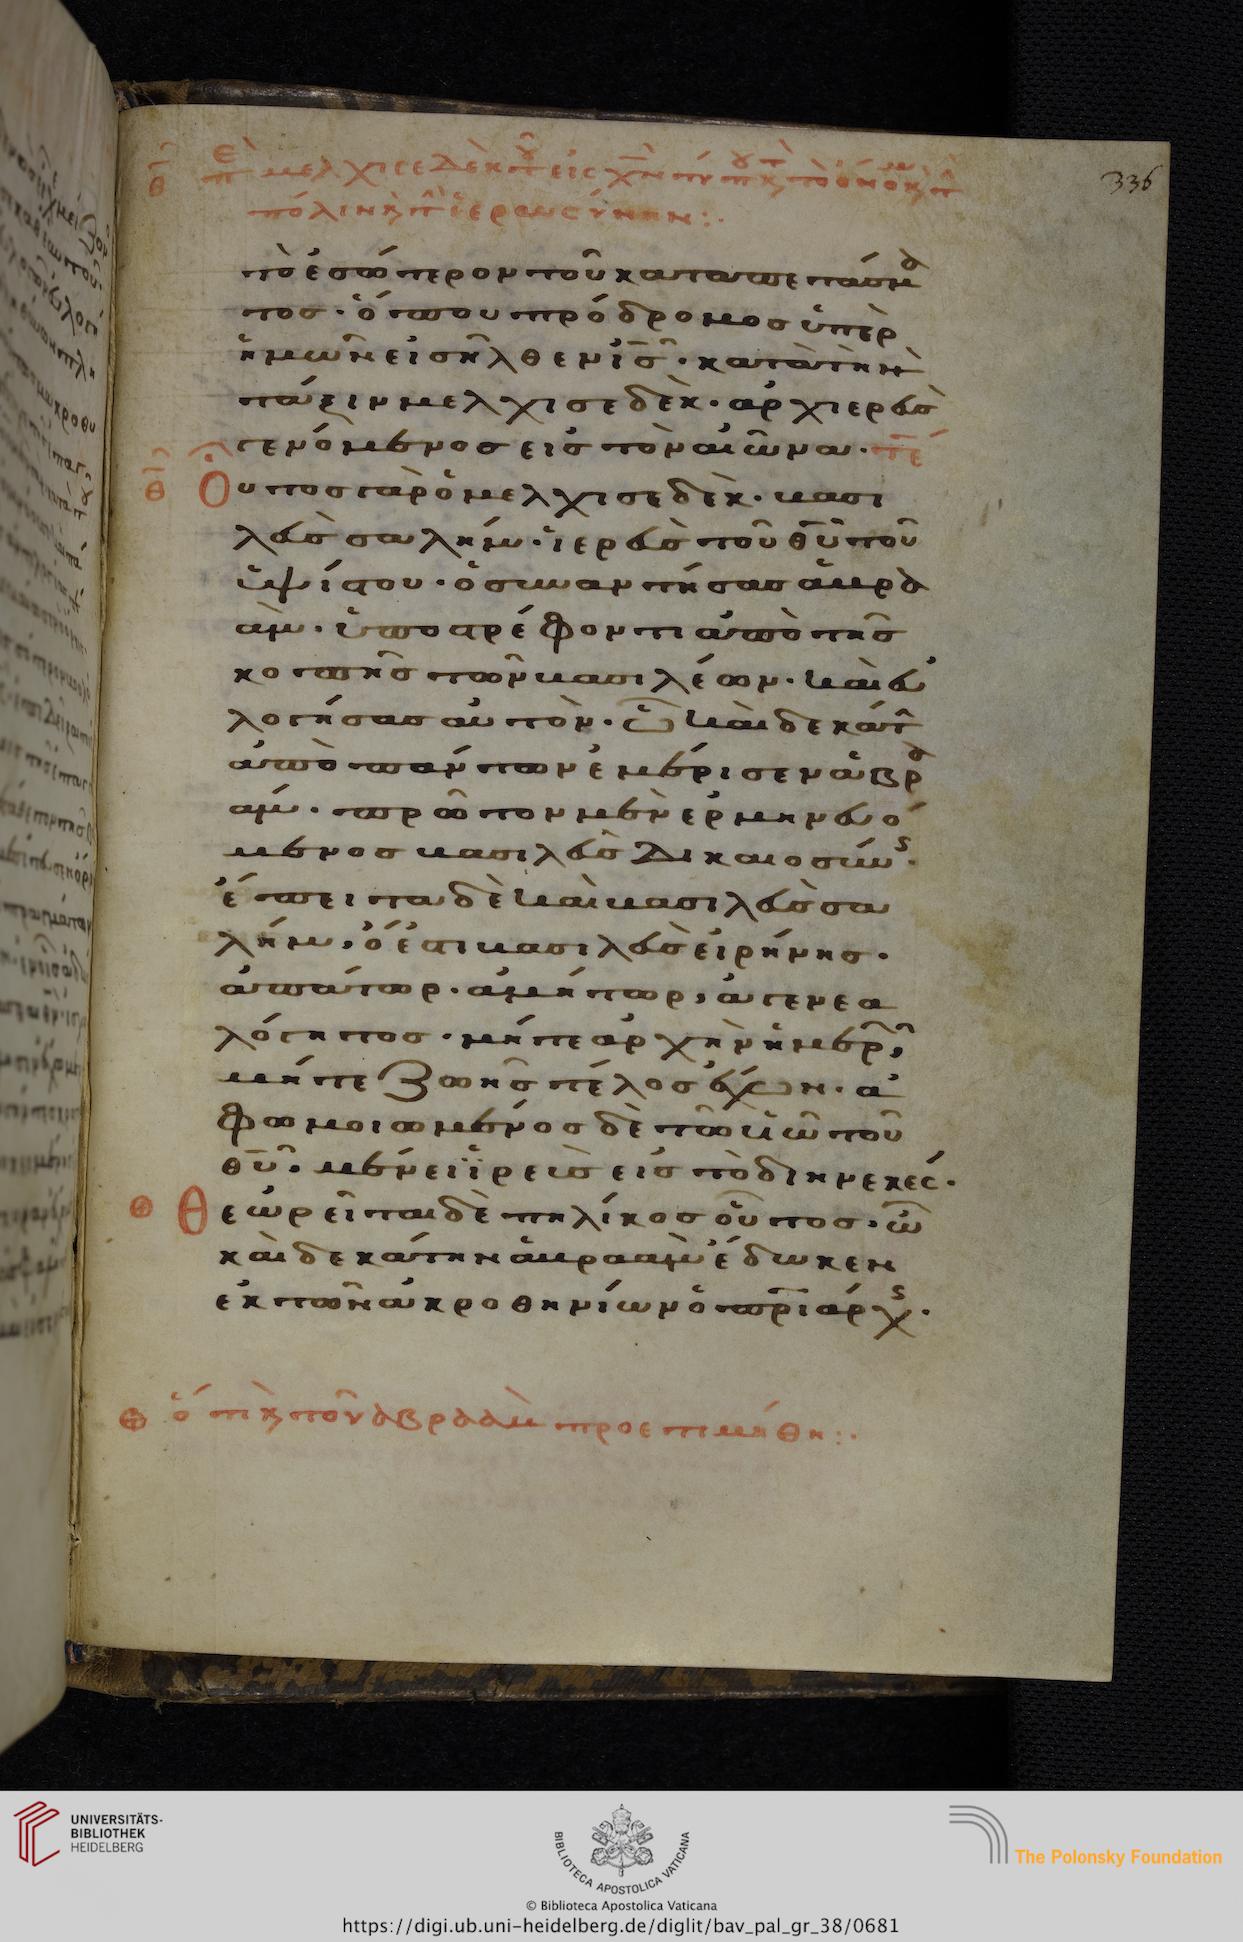 336
πόλιν κ̀ τ̀ ἱερωσύνην :·
τὸ ἐσώτερον τοῦ καταπετάσμα
τος · ὅπου πρόδρομος ὑπὲρ
ἡμῶν εἰσῆλθεν ις̅ · κατὰ τὴν
τάξιν μελχισεδὲκ · ἀρχιερεὺς
γενόμενος εἰς τὸν αἰῶνα · τέ
Οὗτος γὰρ ὁ μελχισεδὲκ · βασι
λεὺς σαλήμ · ἱερεὺς τοῦ θυ̅ τοῦ
ὑψίστου · ὁ συναντήσας ἀβρα
ὰμ · ὑποστρέφοντι ἀπὸ τῆς
κοπῆς τῶν βασιλέων · καὶ εὐ
λογήσας αὐτὸν · ὧ καὶ δεκάτ
ἀπὸ πάντων ἐμέρισεν ἀβρα
άμ · πρῶτον μὲν ἑρμηνευό
μενος βασιλεὺς δικαιοσύν ·
ἔπειτα δὲ καὶ βασιλεὺς σα
λήμ, ὅ ἐστι βασιλεὺς εἰρήνης ·
ἀπάτωρ · ἀμήτωρ, ἀγενεα
λόγητος · μήτε ἀρχὴν ἡμερ,
μήτε ζωῆς τέλος ἔχων · ἀ
φωμοιωμένος δὲ τῶ υἱῶ τοῦ
θυ̅ · μένει ἱερεὺς εἰς τὸ διηνεκές ·
Θεωρεῖται δὲ πηλίκος οὗτος · ὧ
καὶ δεκάτην ἀβραὰμ ἔδωκεν
ἐκ τῶν ἀκροθηνίων ὁ πρ̅ιάρχ ·
ὅτι κ̀ τοῦ ἀβραὰμ προετιμήθη :·
UNIVERSITÄTS-
BIBLIOTHEK
HEIDELBERG
BIBLIOTECA APOSTOLICA VATICANA
The Polonsky Foundation
© Biblioteca Apostolica Vaticana
https://digi.ub.uni-heidelberg.de/diglit/bav_pal_gr_38/0681